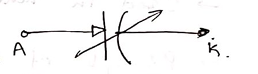 A
K.